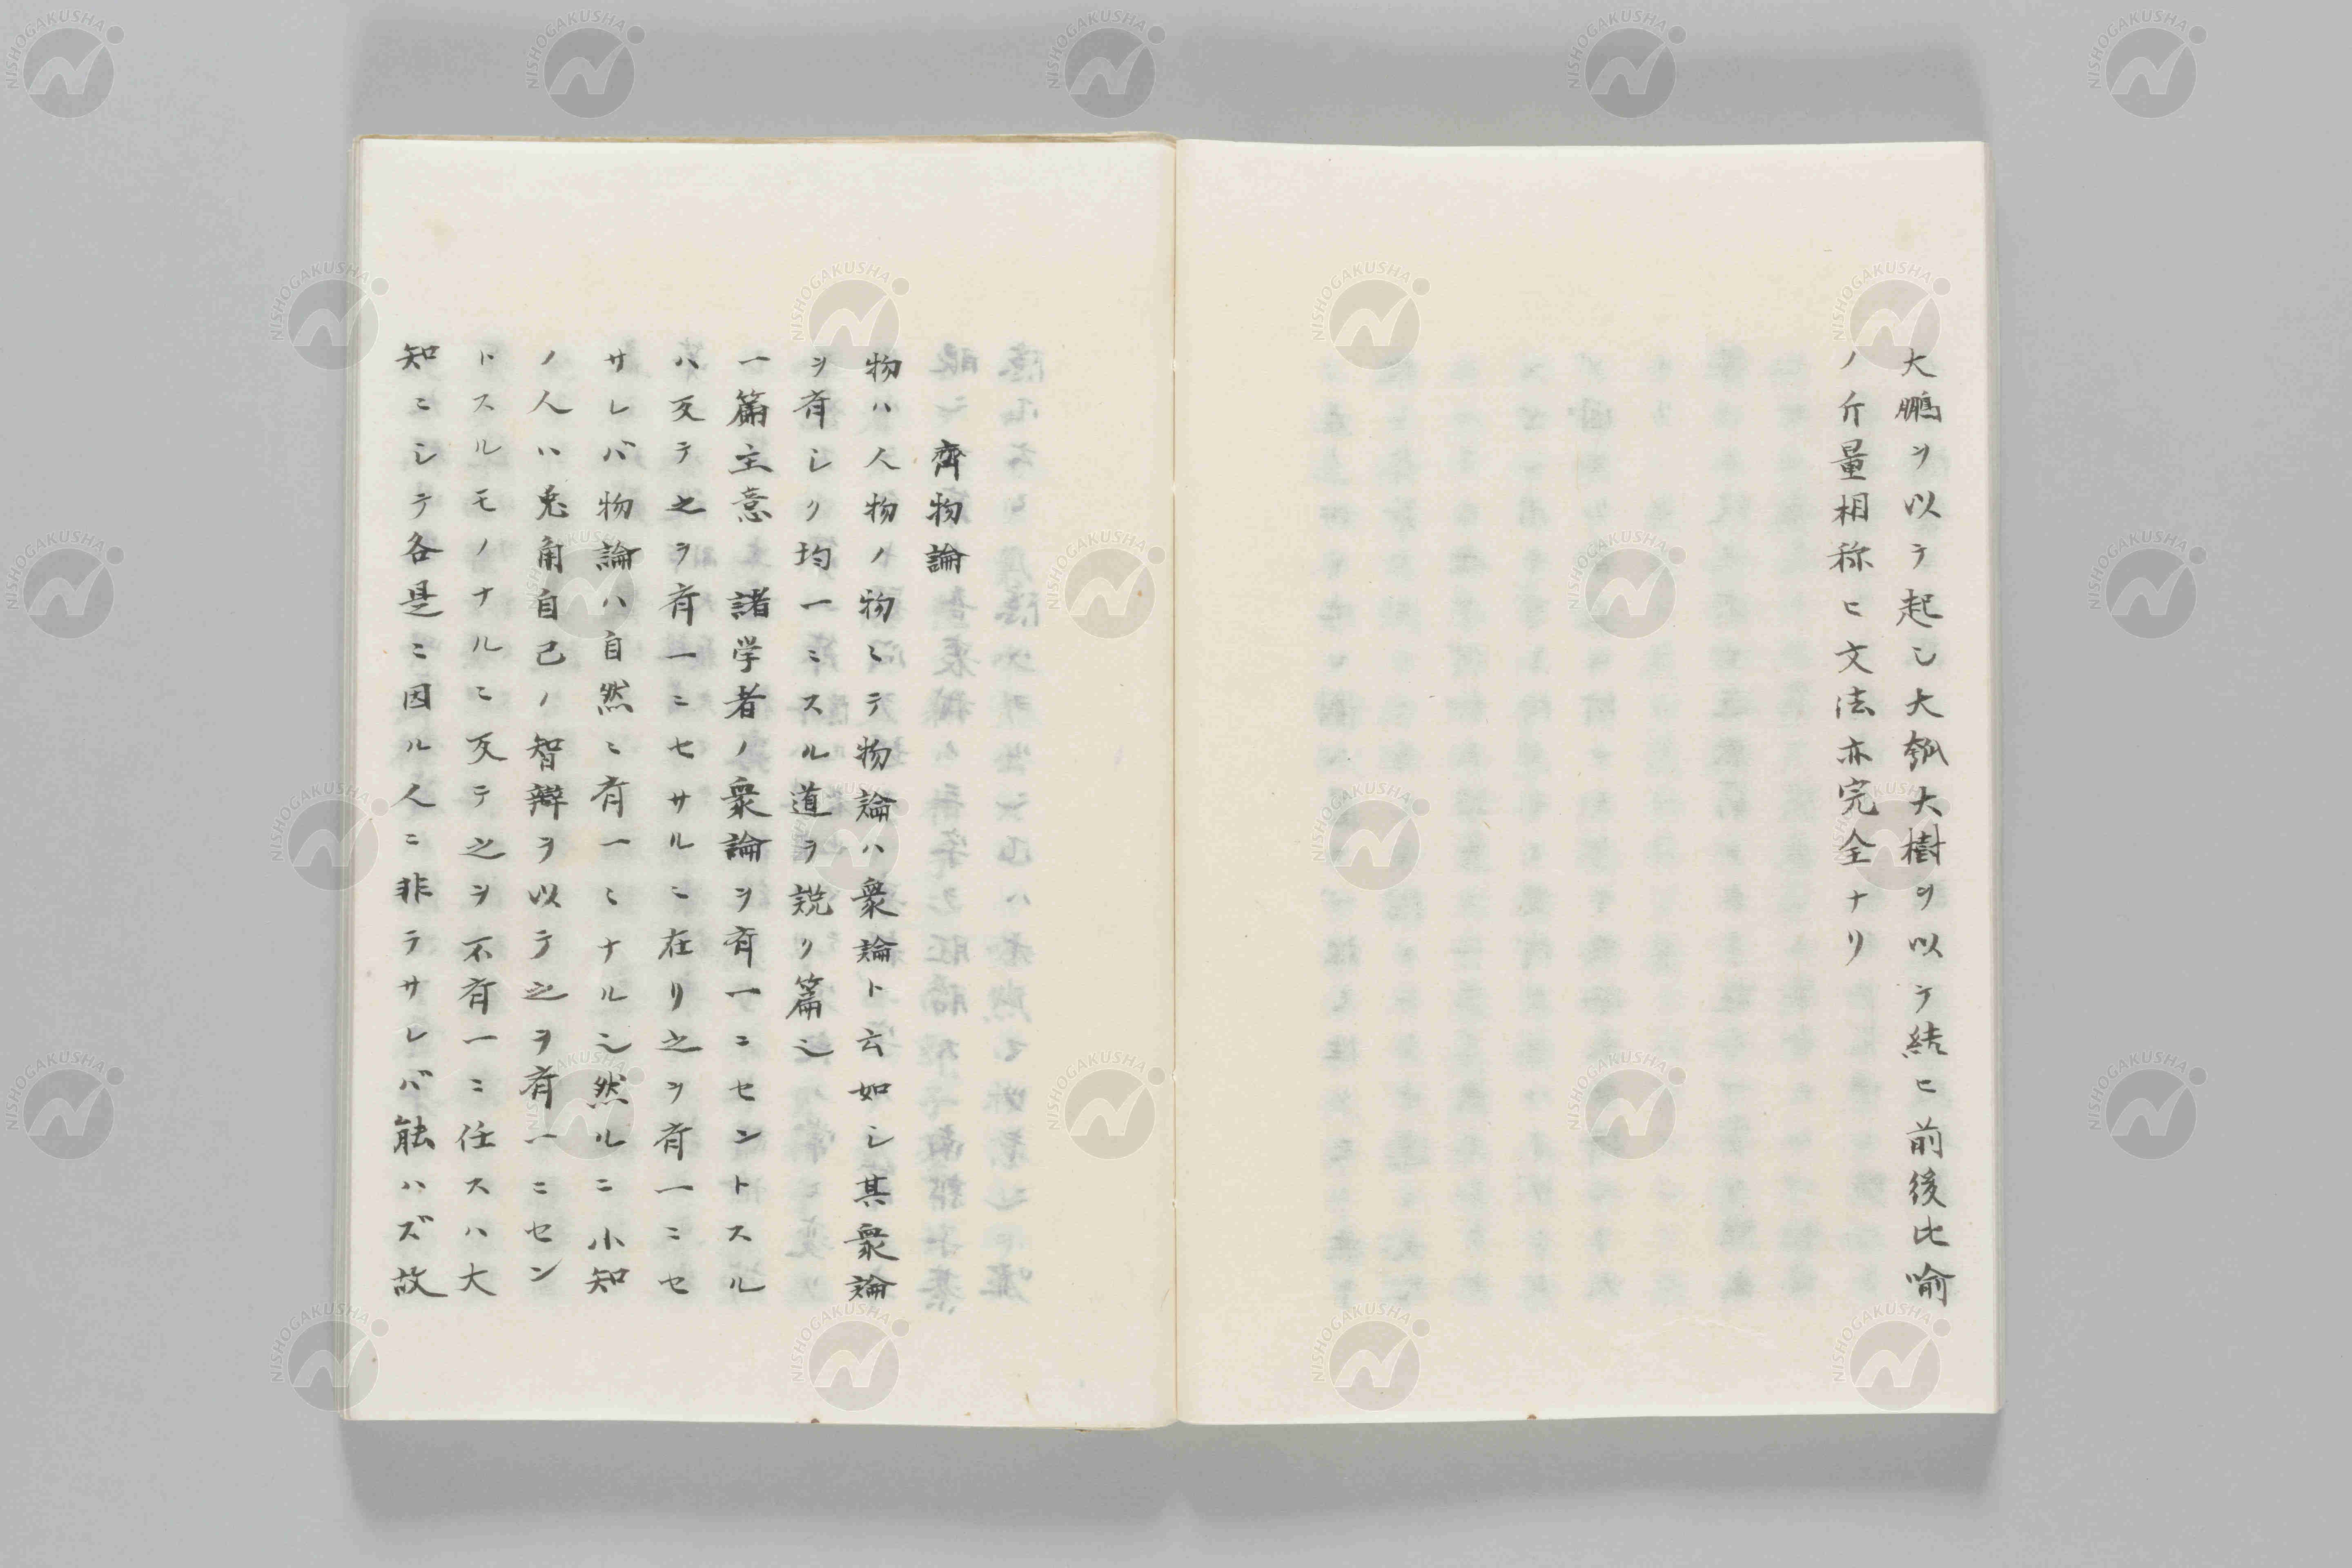 大鵬ヲ以テ起シ大瓠大樹ヲ以テ結ヒ前後比喩
ノ斤量相称ヒ文法亦完全ナリ
齊物論
物ハ人物ノ物ニテ物論ハ衆論ト云如シ其衆論
ヲ斉シク均一ニスル道ヲ説ク篇也
一篇主意 諸学者ノ衆論ヲ斉一ニセントスル
ハ反テ之ヲ斉一ニセサルニ在リ之ヲ斉一ニセ
サレバ物論ハ自然ニ斉一ニナル也然ルニ小知
ノ人ハ兎角自己ノ智辯ヲ以テ之ヲ斉一ニセン
トスルモノナルニ反テ之ヲ不斉一ニ任スハ大
知ニシテ各是ニ因ル人ニ非ラサレバ能ハズ故
NISHOGAKUSHA